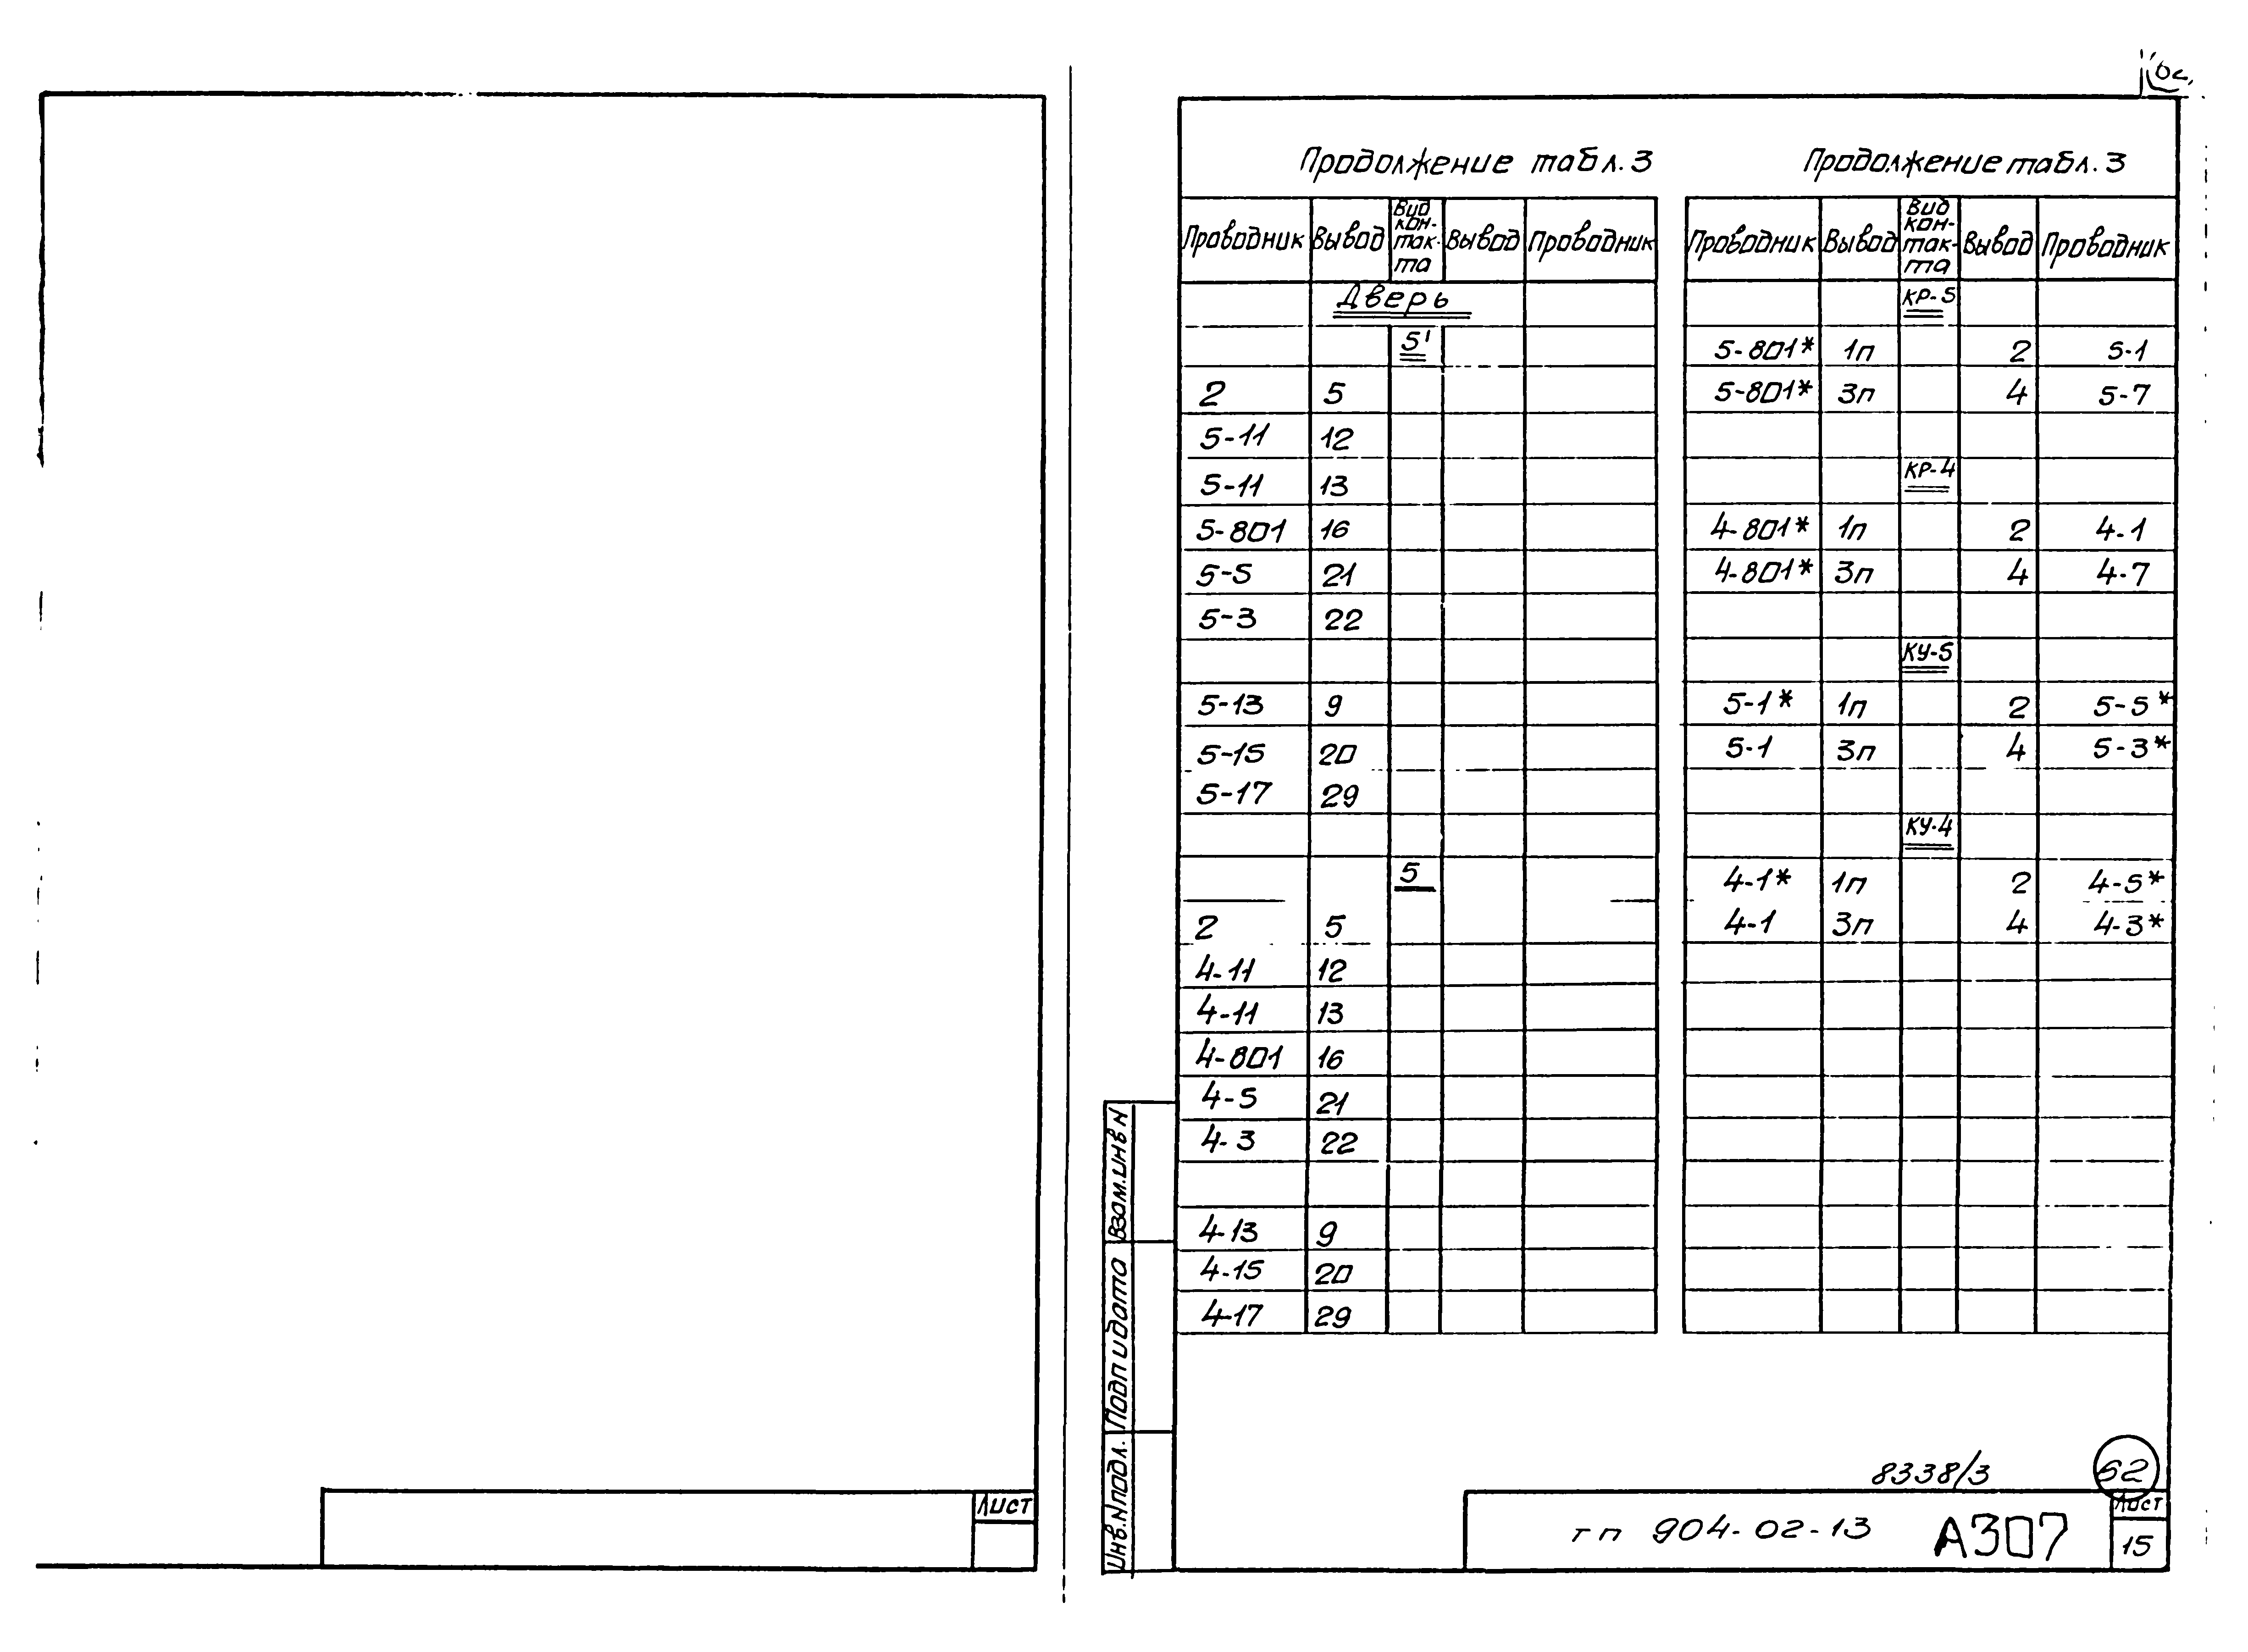 Продолжение табл. 3
Проводник Вывод Вид кон-так-та Вывод Проводник
Дверь
5'
2 5
5-11 12
5-11 13
5-801 16
5-5 21
5-3 22
5-13 9
5-15 20
5-17 29
5
2 5
4-11 12
4-11 13
4-801 16
4-5 21
4-3 22
4-13 9
4-15 20
4-17 29
Продолжение табл. 3
Проводник Вывод Вид кон-так-та Вывод Проводник
КР-5
5-801* 1п 2 5-1
5-801* 3п 4 5-7
КР-4
4-801* 1п 2 4-1
4-801* 3п 4 4-7
КУ-5
5-1* 1п 2 5-5*
5-1 3п 4 5-3*
КУ-4
4-1* 1п 2 4-5*
4-1 3п 4 4-3*
Взам.инв N
Подп и дата
Инв.N подл.
8338/3
62
тп 904-02-13 А307
Лист
15
Лист